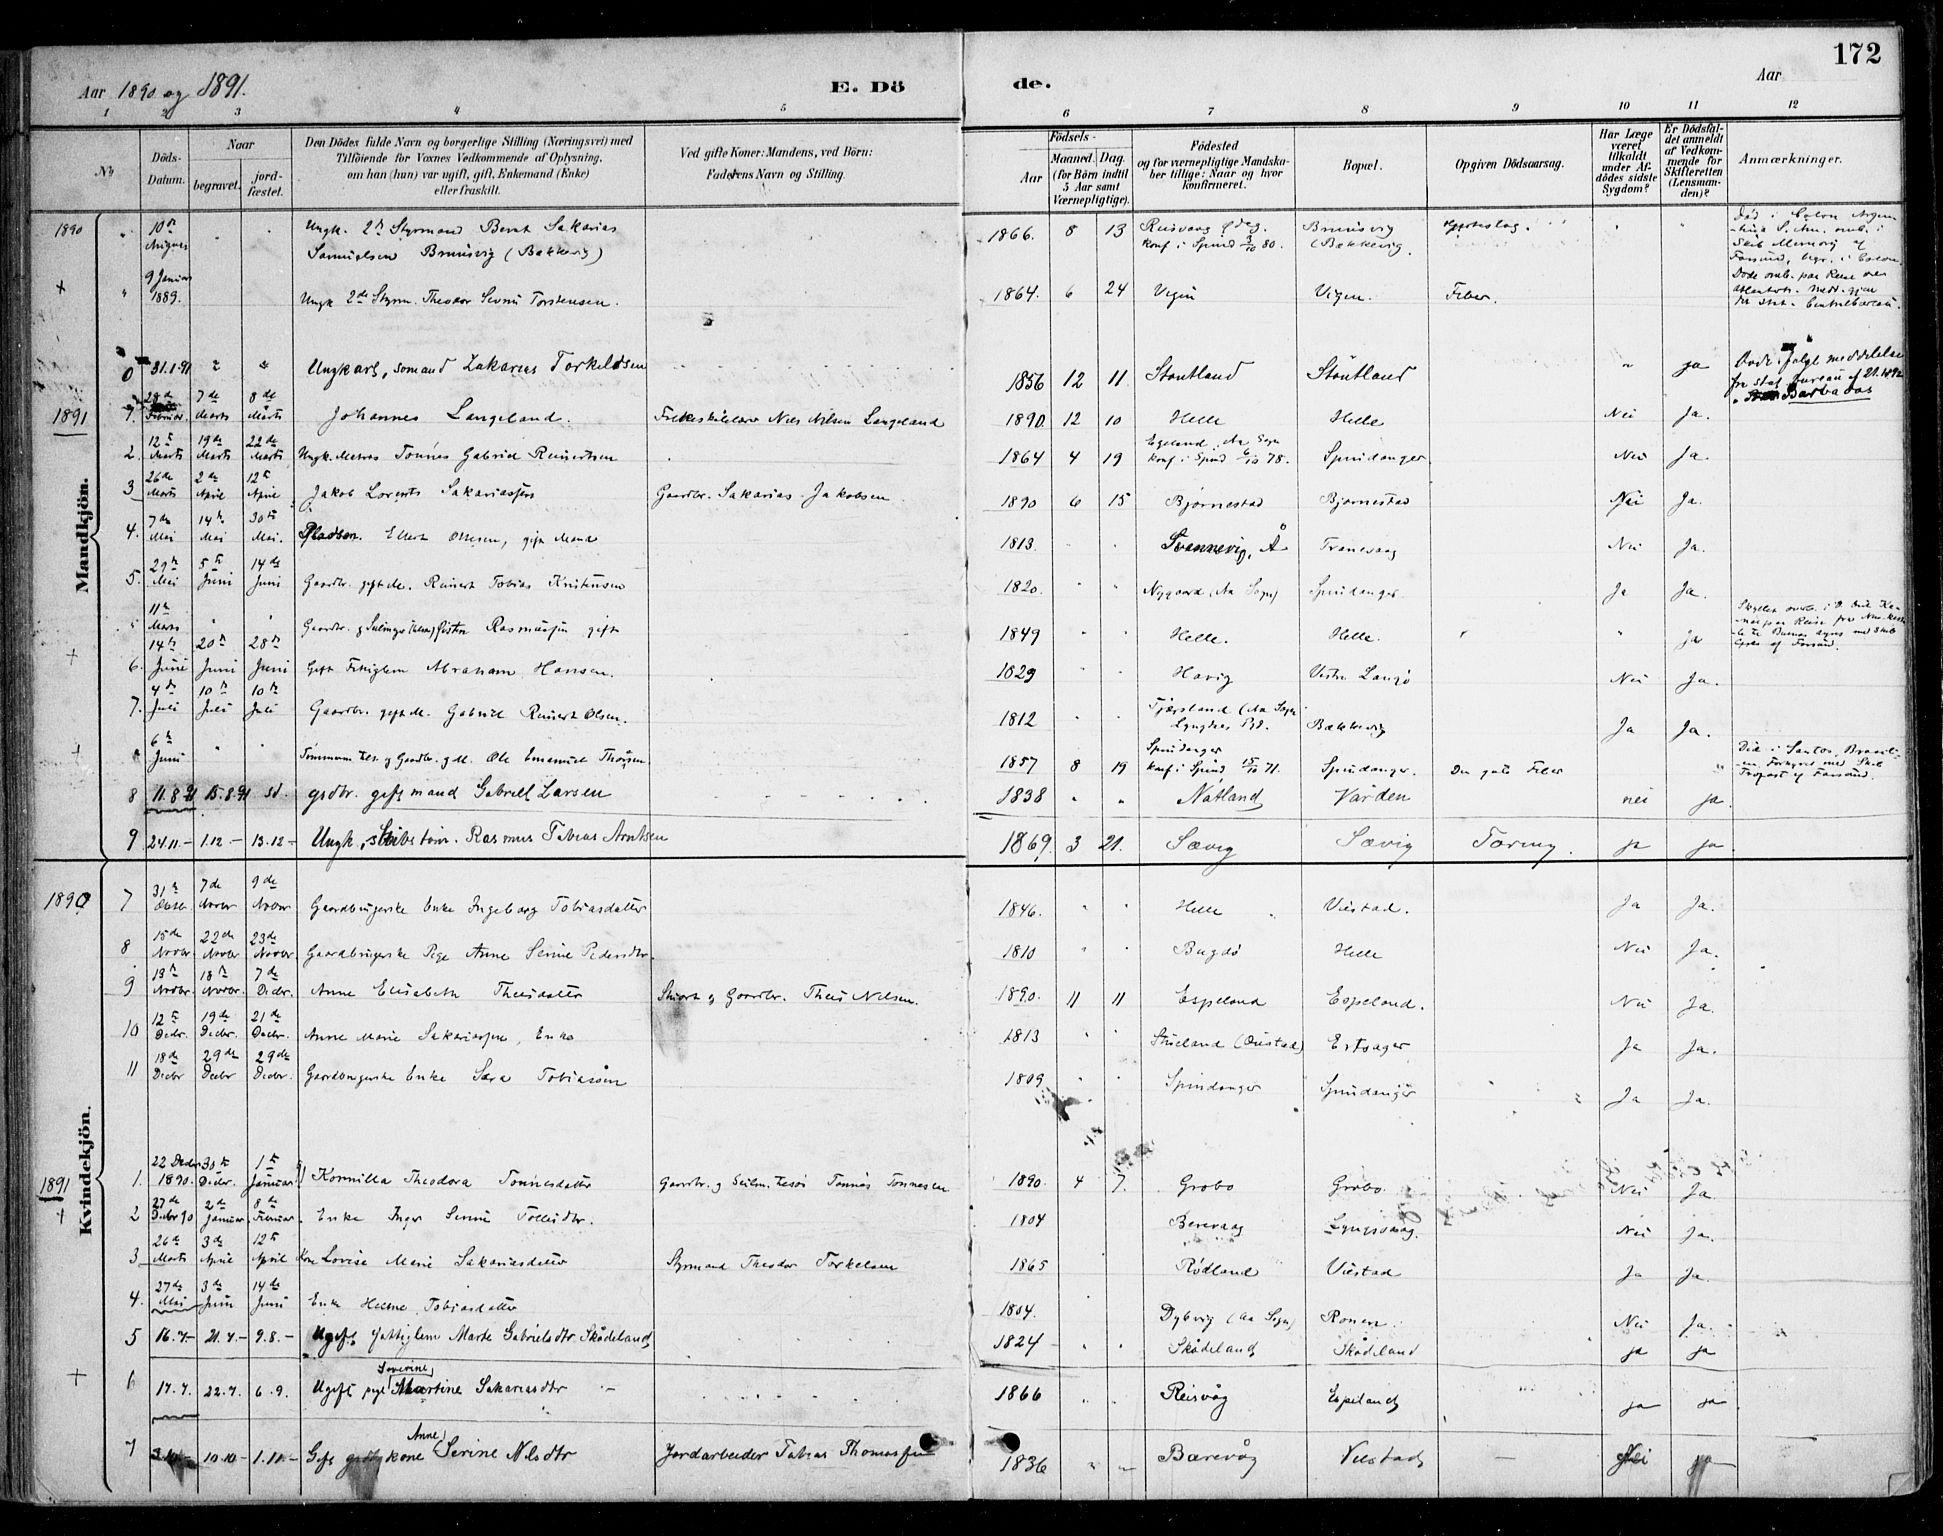 172
Aar 1890 og 1891.
E. Döde.
Aar
1 2 3 4 5 6 7 8 9 10 11 12
No
Döds-Datum.
Naar
begravet.
jord-fæstet.
Den Dödes fulde Navn og borgerlige Stilling (Næringsvei) med
Tilföiende for Voxnes Vedkommende af Oplysning,
om han (hun) var ugift, gift, Enkemand (Enke)
eller fraskilt.
Ved gifte Koner: Mandens, ved Börn:
Faderens Navn og Stilling.
Födsels-
Aar
Maaned. Dag.
(for Börn indtil
5 Aar samt
Værnepligtige).
Födested
og for værnepligtige Mandska-
ber tillige: Naar og hvor
konfirmeret.
Bopæl.
Opgiven Dödsaarsag.
Har Læge
været
tilkaldt
under Af-
dödes sidste
Sygdom?
Er Dödsfal-
det anmeldt
af Vedkom-
mende for
Skifteretten
(Lensman-
den)?
Anmærkninger.
Mandkjön.
1890 " 10de August Ungk. 2den Styrmand Bernt Sakarias 1866. 8 13 Brunsvig
Samuelsen Brunsvig (Bakkevig) konf. i Spind 80. (Bakkevig)
" 9 Januar 1889. Ungk 2de Styrm. Theodor Severin Torstensen. 1864. 6 24 Vigen Vigen. Feber.
0 31.1.91 " " Ungkarl, sømand Zakarias Torkeldsen 1856 12 11 Stoutland Stoutland " ja
Døde i følge meddelelse
fra stat. bureau af 21. 1892
Barbados
1891 1. 28de Februar 7de Marts 8de Marts Johannes Langeland. Folkeskolelærer Niels Nilsen Langeland 1890 12 10 Helle Helle Nei Ja.
2. 12te Marts 19de Marts 22de Marts Ungk. Matros Tønnes Gabriel Reinertsen 1864 4 19 Egeland, Aa Sogn konf. i Spind 78. Spindanger Nei Ja.
3 26de Marts 2de April 12te April Jakob Lorents Sakariassen Gaardbr. Sakarias Jakobsen 1890 6 15 Bjørnestad Bjørnestad Nei Ja.
4. 7de Mai 14de Mai 30te Mai. Pladsm. Ellert Olsen, gift Mand 1813. " " Svennevig, Å Tranevaag Nei Ja.
5. 29de Mai 5te Juni 14de Juni Gaardbr. gift M. Reinert Tobias Knutsen 1820. " " Nygaard (Aa Sogn) Spindanger Ja Ja.
" 11te Marts " " Gaardbr. Rasmussen gift 1849 " " Helle. Helle. " " ja
6. 14de Juni 20de Juni 28de Juni Gift Fattiglem Abraham Hansen. 1829 Havig Vestre Langø Nei Ja.
7. 4de Juli 10de Juli 10de Juli Gaardbr. gift M. Gabriel Reinert Olsen. 1812 " " (Aa Sogn Lyngdal Pgd. Bækkevig Ja Ja.
" 6te Juni " " Tømmermand og Gaardbr. Ole Emanuel Thorsen 1857 8 19 Spindanger konf. i Spind 71. Spindanger. Den gule Feber "
Død i Santos, Brasili-
8 11.8.91 15.8.91 sd. gdbr. gift mand Gabriel Larsen 1838 " " Natland Varden nei ja
9 24.11.- 1.12.- 13.12.- Ungk., Skibstøm. Rasmus Tobias Arntsen 1869. 3 21. Sævig Sævig Tæring. ja ja
Kvindekjön.
1890 7 31te Oktbr 7de Novbr 9de Novbr Gaardbrugerske Enke Ingeborg Tobiasdatter 1846. " " Helle Viestad. Ja Ja.
8 15de Novbr 22de Novbr 23de Novbr Gaardbrugerske Pige Anne Serine Pedersdtr. 1810 " Bugdø Helle Nei Ja.
9 13de Novbr. 18de Novbr. 7de Decbr. Anne Elisabeth Theisdatter og Gaardbr. Theis Nilsen. 1890. 11 11 Espeland Espeland. Nei Ja.
10 12te Decbr. 19de Decbr. 21de Decbr. Anne Marie Sakariassen, Enke 1813 " Ja Ja.
11 18de Decbr 29de Decbr 29de Decbr. Gaardbrugerske Enke Sara Tobiassen 1809 " " Spindanger Spindanger Ja Ja.
1891 1. 22 Decbr 1890. 30te Decbr. 1te Januar Kornilia Theodora Tønnesdatter Gaardbr. og Tønnes Tønnesen 1890. 4 7. Grøbo Grøbo. Nei Ja
2 27de Decbr 90 2de Januar 8de Februar. Enke Inger Serine Tollisdtr. 1804 Berevaag Lyngsvaag. Nei Ja.
3 26de Marts 3de April 12te April Kone Lovise Marie Sakariasdatter Styrmand Theodor Torkelsen 1865 Rødland Viestad Ja Ja.
4. 27de Mai 3de Juni 14de Juni Enke Helene Tobiasdatter 1804. Dybvig (Aa Sogn) Ronen Nei Ja.
5 16.7.- 21.7.- 9.8.- Ugift fattiglem Marte Gabrielsdtr Skådeland 1824 " " Skådeland Skådeland ja ja
6 17.7. 22.7. 6.9. Ugift pige Severine Martine Sakariasdtr 1866 " " Reisvåg Espeland ja ja
7 10.10.- 1.11.- Gift gdbr kone Anne Serine Nilsdtr Jordarbeider Tobias Thomassen 1836 " " Bærevåg Viestad — Nei ja